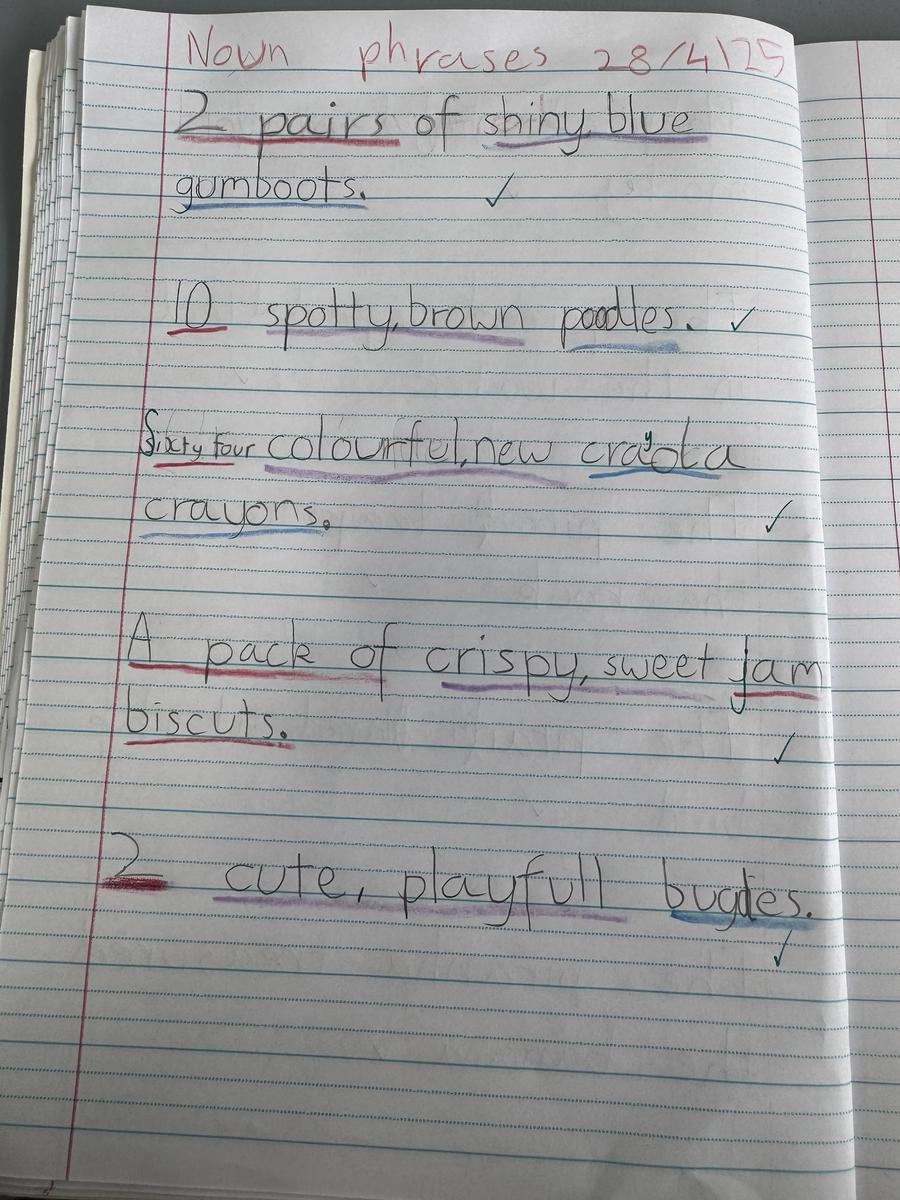 Nown phrases 28/4/25
2 pairs of shiny, blue
gumboots.
10 spotty, brown poodles.
Sixty four colourful, new crayola
crayons.
A pack of crispy, sweet jam
biscuts.
2 cute, playfull bugdes.